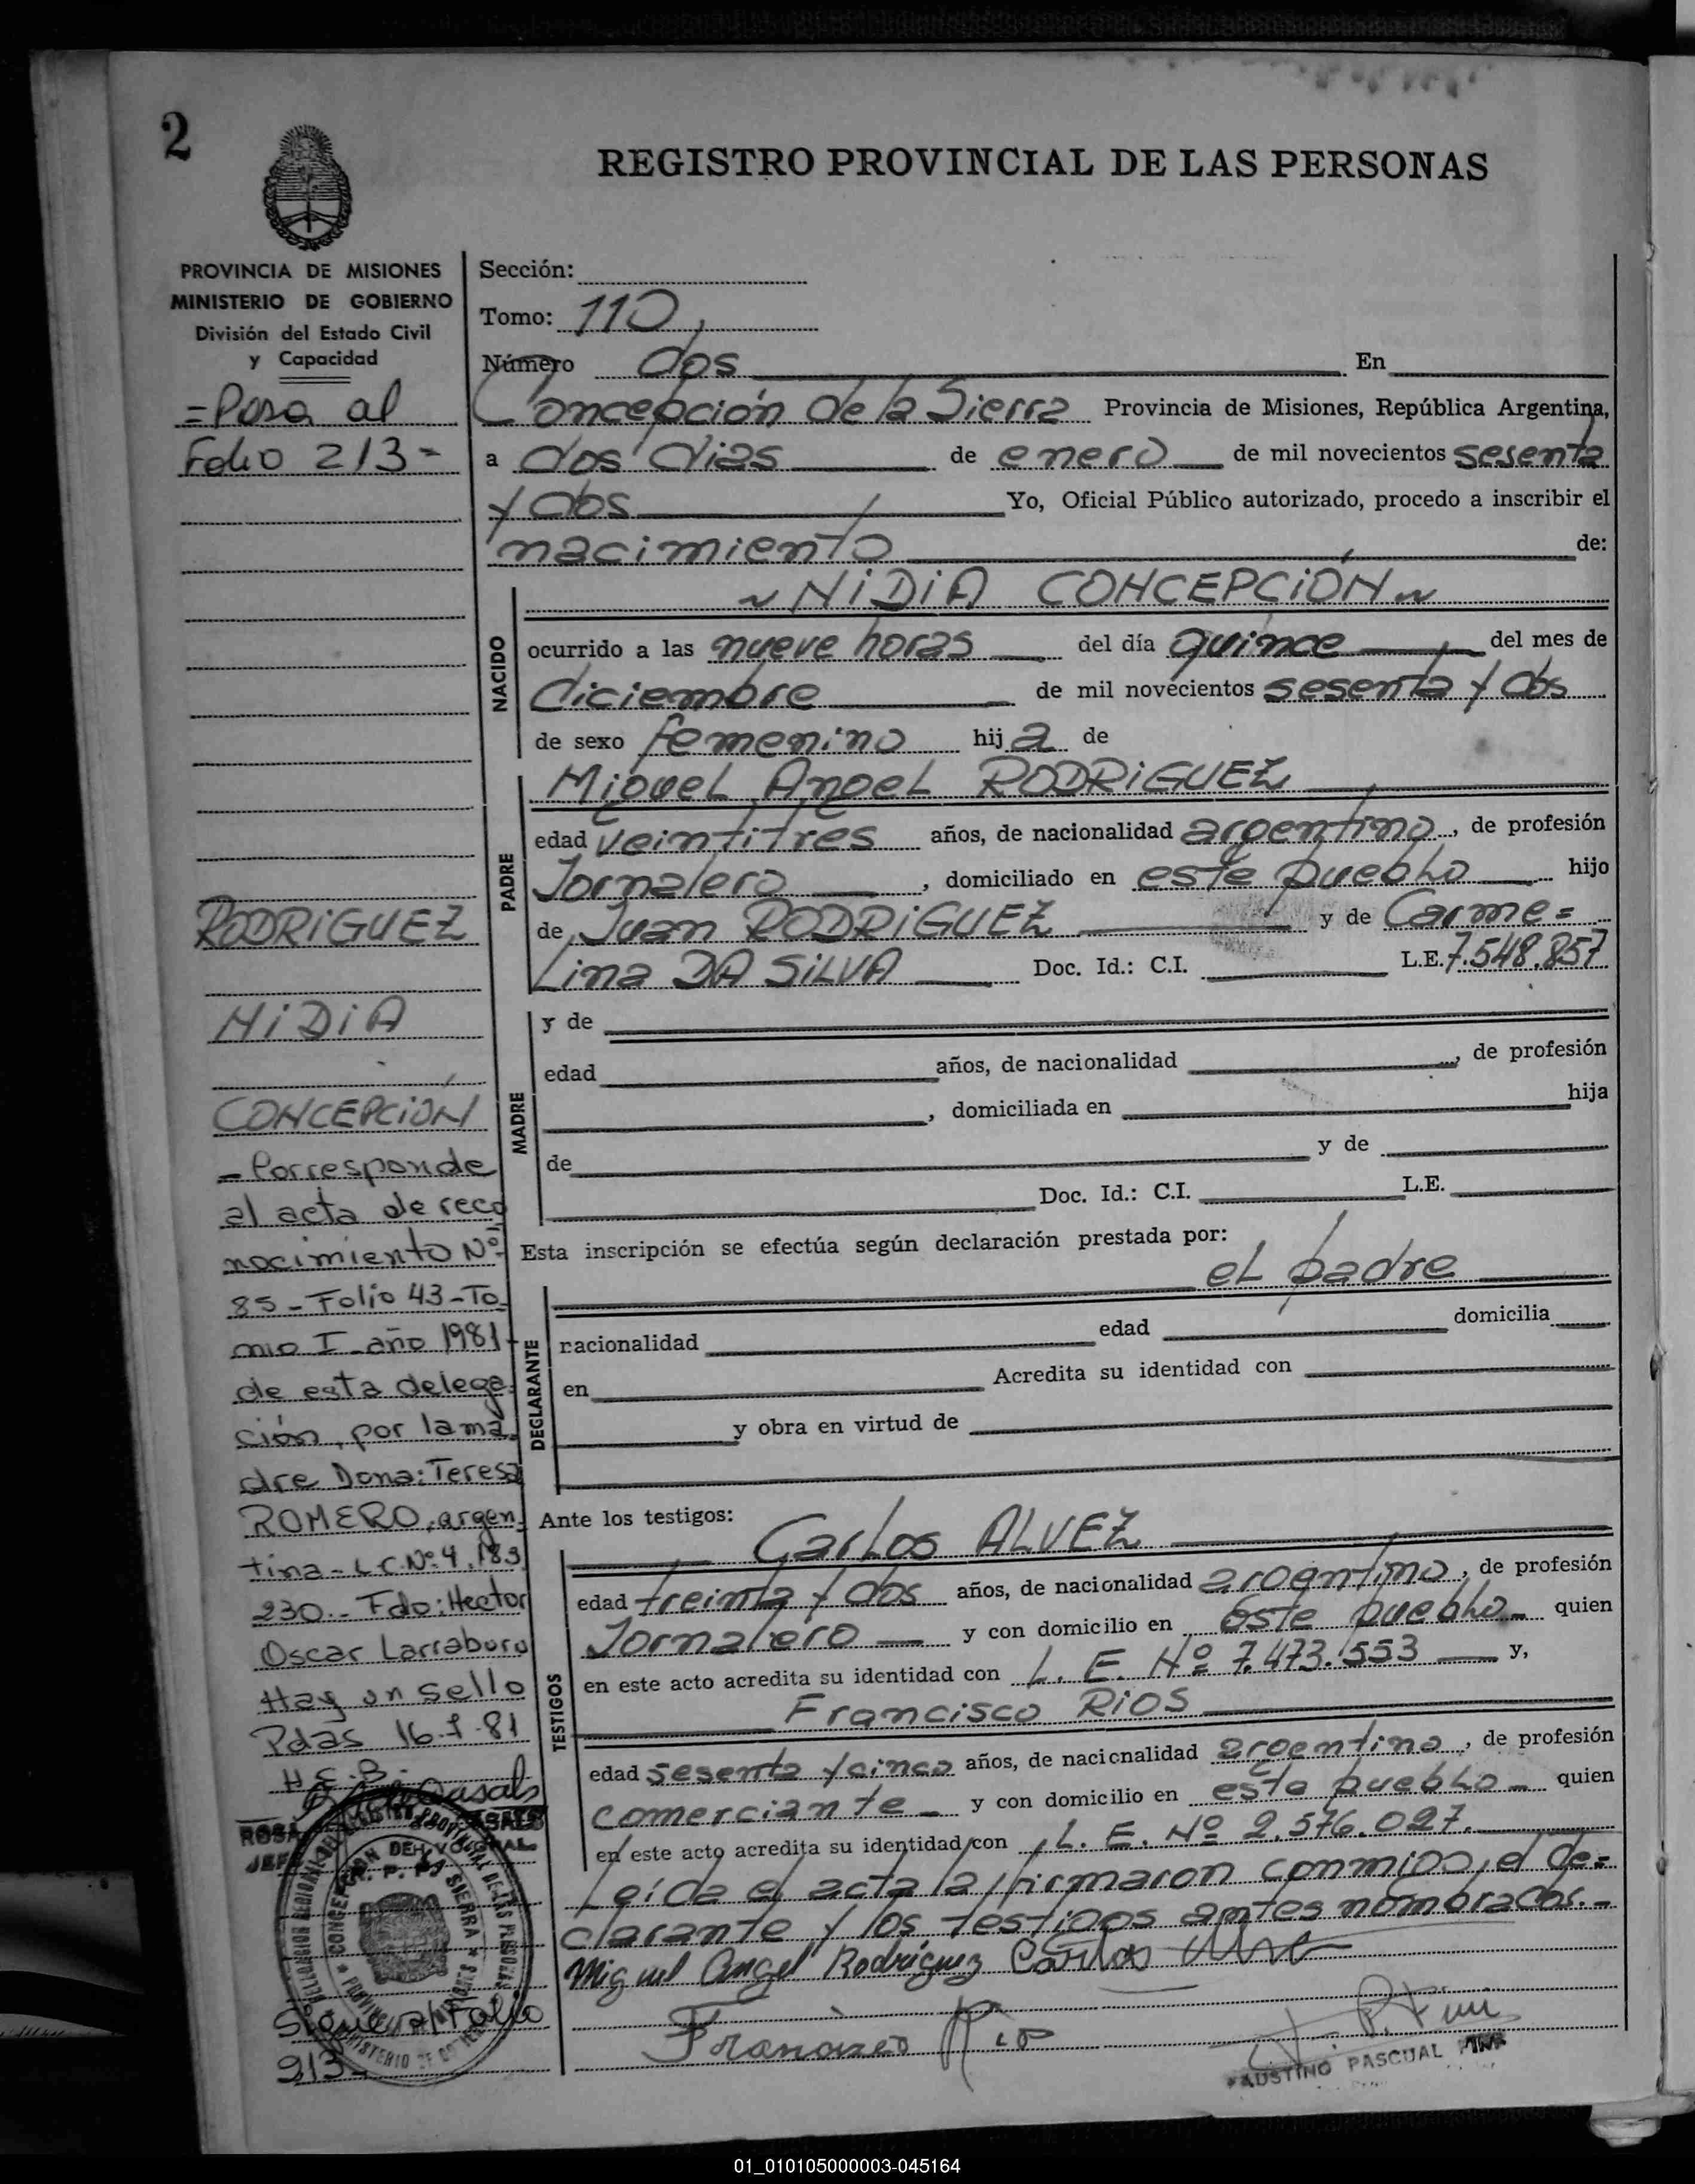 2
REGISTRO PROVINCIAL DE LAS PERSONAS
PROVINCIA DE MISIONES
MINISTERIO DE GOBIERNO
División del Estado Civil
y Capacidad
=Pasa al
Folio 213-
RODRIGUEZ
NIDIA
CONCEPCIÓN
- Corresponde
al acta de reco
nocimiento Nº
85 - Folio 43 - To
mo I - año 1981 -
de esta delega
ción, por la ma
dre Dona: Teresa
ROMERO, argen
tina - L.C. Nº 4.183
230.- Fdo: Hector
Oscar Larraburu
Hay un sello
Pdas 16-7-81
H.C.B.
ROSA
JEF
Sigue al Folio
213-
Sección:
Tomo: 110,
Número dos En
Concepción de la Sierra Provincia de Misiones, República Argentina,
a dos dias de enero de mil novecientos sesenta
y dos Yo, Oficial Público autorizado, procedo a inscribir el
nacimiento de:
NACIDO
~ NIDIA CONCEPCIÓN ~
ocurrido a las nueve horas del día quince del mes de
diciembre de mil novecientos sesenta y dos
de sexo femenino hija de
PADRE
Miguel Angel RODRIGUEZ
edad veintitres años, de nacionalidad argentino, de profesión
Jornalero, domiciliado en este pueblo hijo
de Juan RODRIGUEZ y de Carme=
Lina DA SILVA Doc. Id.: C.I. L.E. 7.548.857
MADRE
y de
edad años, de nacionalidad , de profesión
, domiciliada en hija
de y de
Doc. Id.: C.I. L.E.
Esta inscripción se efectúa según declaración prestada por:
el padre
DECLARANTE
nacionalidad edad domicilia
en Acredita su identidad con
y obra en virtud de
Ante los testigos:
Carlos ALVEZ
TESTIGOS
edad treinta y dos años, de nacionalidad argentino, de profesión
Jornalero y con domicilio en este pueblo quien
en este acto acredita su identidad con L. E. Nº 7.473.553 y,
Francisco RIOS
edad sesenta y cinco años, de nacionalidad argentino, de profesión
comerciante y con domicilio en este pueblo quien
en este acto acredita su identidad con L. E. Nº 2.576.027.
Leída el acta la firmaron conmigo, el de=
clarante y los testigos antes nombrados.-
Miguel Angel Rodriguez Carlos
Francisco Rios
FAUSTINO PASCUAL
01_010105000003-045164